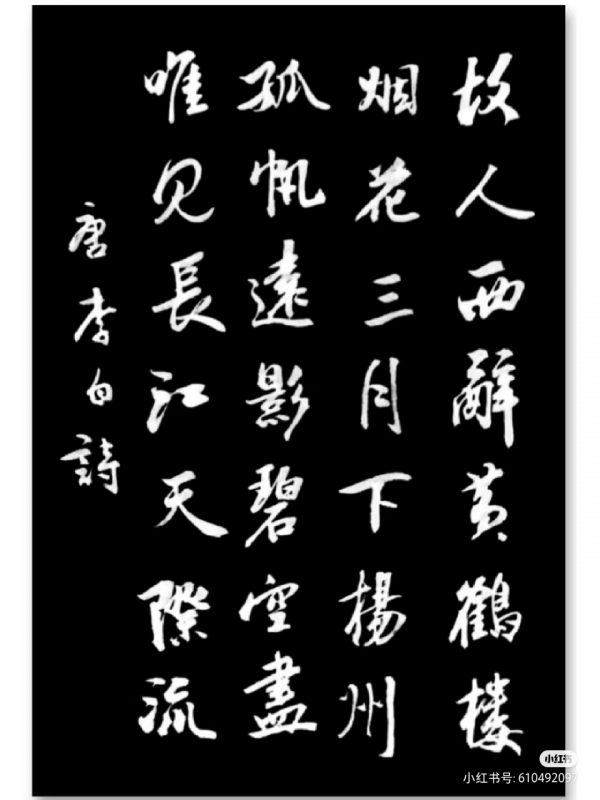 故人西辭黄鶴楼
烟花三月下楊州
孤帆遠影碧空盡
唯见長江天際流
唐李白詩
小红书
小红书号: 610492097